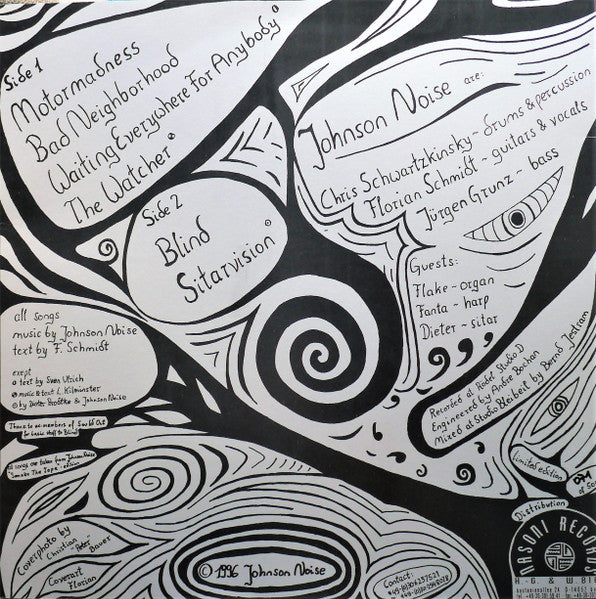 Side 1
Motormadness
Bad Neighborhood
Waiting Everywhere For Anybody
The Watcher
Side 2
Blind
Sitarvision
Johnson Noise are:
Chris Schwartzkinsky - drums & percussion
Florian Schmidt - guitars & vocals
Jürgen Grunz - bass
Guests:
Flake - organ
Fanta - harp
Dieter - sitar
all songs
music by Johnson Noise
text by F. Schmidt
exept
text by Sven Utrich
music & text L. Kilminster
by Dieter & Johnson Noise
to ex-members of
for basic stuff to Blind
all songs are taken from Johnson Noise
"Smoke The Tape" - edition
Recorded at Rodel Studio D
Engineered by Andre Bochan
Mixed at Studio Bleibeit by Bernd Jestram
limited edition
071
of 500
Distribution
NASONI RECORDS
Coverphoto by
Christian "Peter" Bauer
Coverart
Florian
© 1996 Johnson Noise
Contact: